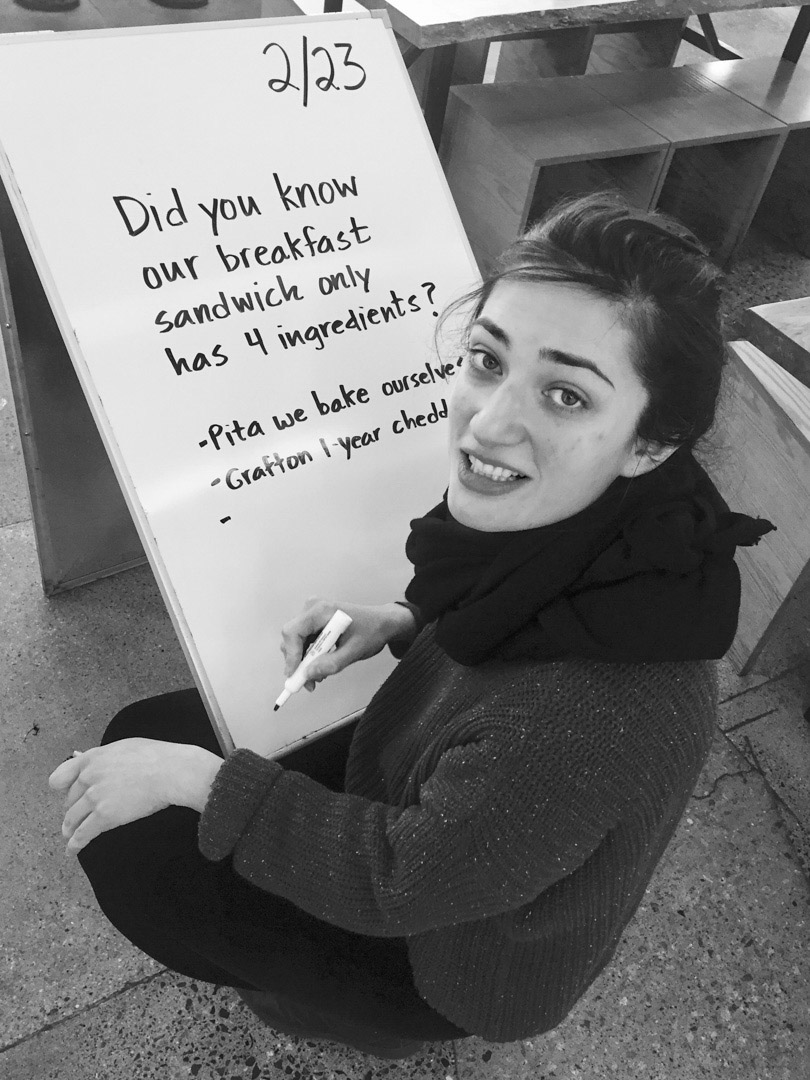 2/23
Did you know
our breakfast
sandwich only
has 4 ingredients?
-Pita we bake ourselve
-Grafton 1-year chedd
-